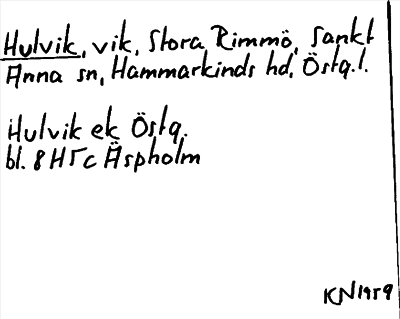 Hulvik, vik, Stora Rimmö, Sankt
Anna sn, Hammarkinds hd, Östg.l.
Hulvik ek Östg.
bl. 8H5c Äspholm
KN1959